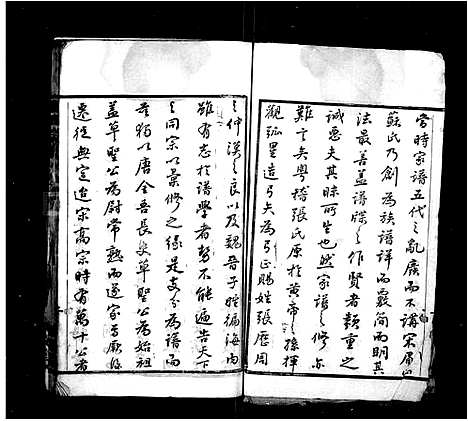 當時家譜五代之亂廢而不講宋眉山
蘇氏乃創為族譜詳而覈簡而明其
法最善蓋譜牒之作賢者類重之
誠惡夫其昧所生也然家譜之修亦
難言矣粵稽張氏原於黃帝之孫揮
觀弧星造弓矢為弓正賜姓張歷周
之仲漢之良以及魏晉子姓徧海内
雖有志於譜學者勢不能遍告天下
之同宗以彙修之緣是支分為譜而
吾獨以唐金吾長史草聖公為始祖
蓋草聖公為尉常熟而遂家焉厥後
遷徙無定迨宋高宗時有萬十公者